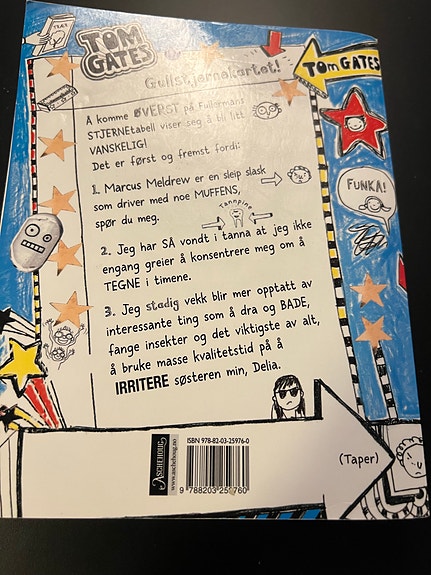 TOM
GATES
Gullstjernekartet!
TOM GATES
Å komme ØVERST på Fullermans
STJERNEtabell viser seg å bli litt
VANSKELIG!
Det er først og fremst fordi:
FUNKA!
1. Marcus Meldrew er en sleip slask
som driver med noe MUFFENS,
spør du meg.
Tannpine
2. Jeg har SÅ vondt i tanna at jeg ikke
engang greier å konsentrere meg om å
TEGNE i timene.
3. Jeg stadig vekk blir mer opptatt av
interessante ting som å dra og BADE,
fange insekter og det viktigste av alt,
å bruke masse kvalitetstid på å
IRRITERE søsteren min, Delia.
ASCHEHOUG
www.aschehoug.no
ISBN 978-82-03-25976-0
9 788203 259760
(Taper)